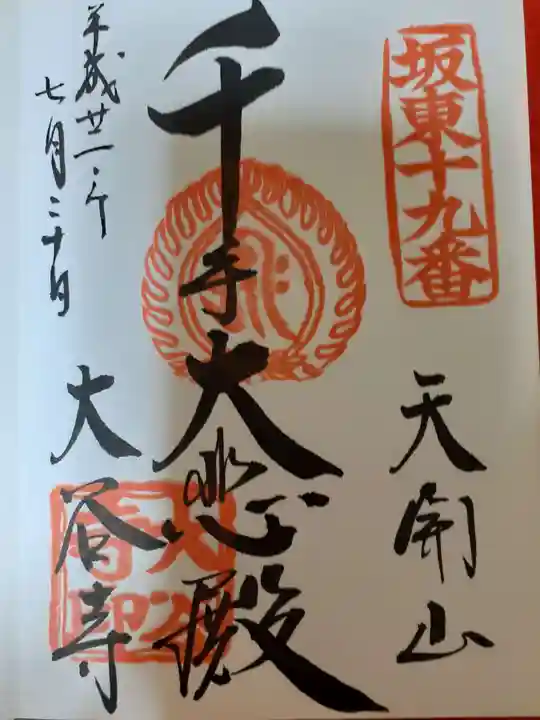 坂東十九番
天開山
千手大悲殿
平成廿一年
七月二十日
大谷寺
大谷
寺印